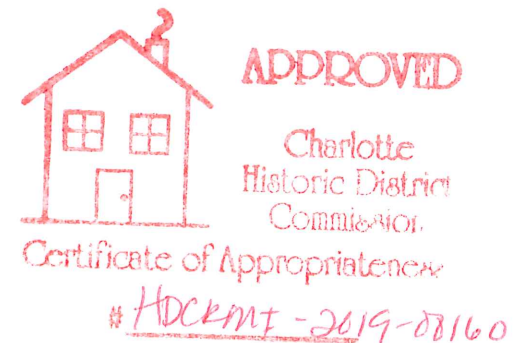 APPROVED
Charlotte
Historic District
Commission
Certificate of Appropriateness
# HDCRMI-2019-00160